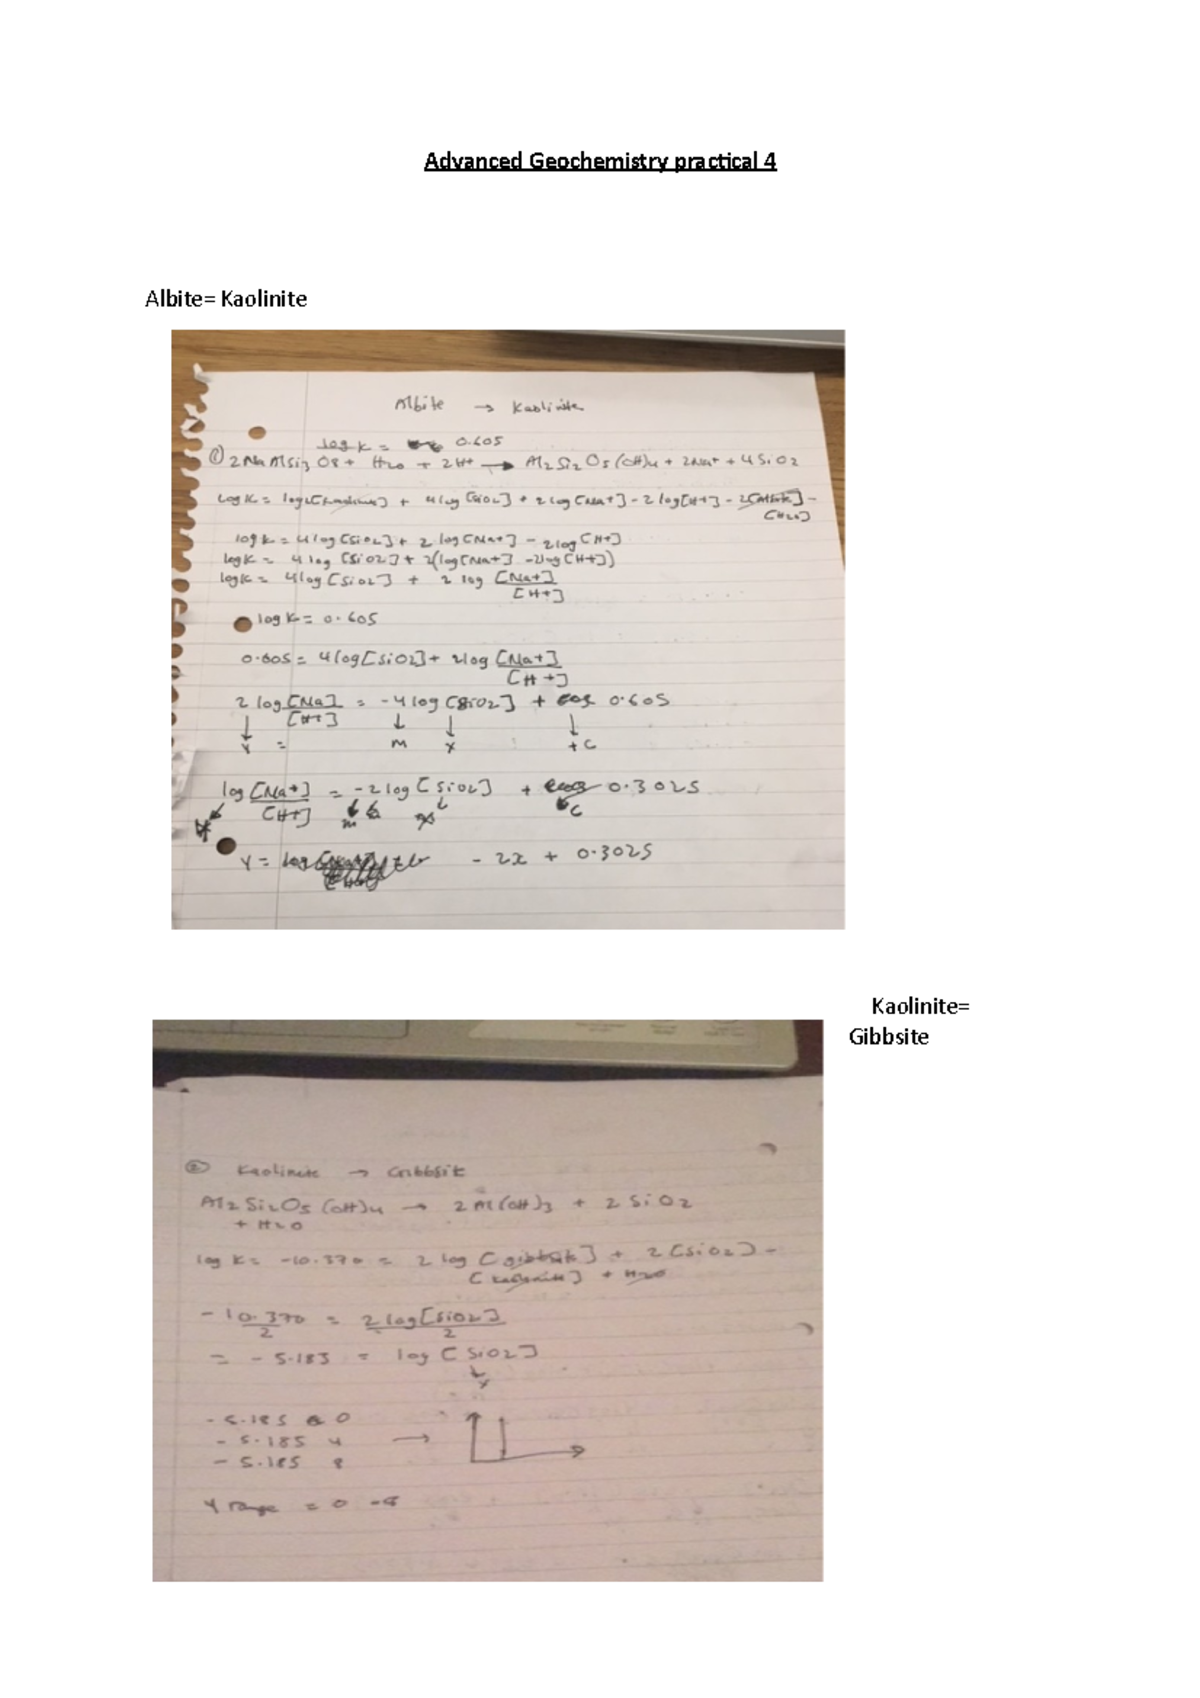 Advanced Geochemistry practical 4
Albite= Kaolinite
Albite → Kaolinite
log K = 0.605
① 2NaAlSi3O8 + H2O + 2H+ → Al2Si2O5(OH)4 + 2Na+ + 4SiO2
log K = log[Kaolinite] + 4log[SiO2] + 2log[Na+] - 2log[H+] - 2[Albite] -
[H2O]
log K = 4log[SiO2] + 2log[Na+] - 2log[H+]
log K = 4log[SiO2] + 2(log[Na+] - 2log[H+])
log K = 4log[SiO2] + 2log [Na+]
[H+]
log K = 0.605
0.605 = 4log[SiO2] + 2log [Na+]
[H+]
2log [Na] = -4log[SiO2] + 0.605
[H+]
Y = m x + c
log [Na+] = -2log[SiO2] + 0.3025
[H+] m x c
Y = - 2x + 0.3025
Kaolinite=
Gibbsite
② Kaolinite → Gibbsit
Al2Si2O5(OH)4 → 2Al(OH)3 + 2SiO2
+ H2O
log K = -10.370 = 2log[gibbsite] + 2[SiO2] -
[kaolinite] + H2O
-10.370 = 2log[SiO2]
2 2
= -5.183 = log[SiO2]
-5.185 0
-5.185 4 →
-5.185 8
Y range = 0 -8